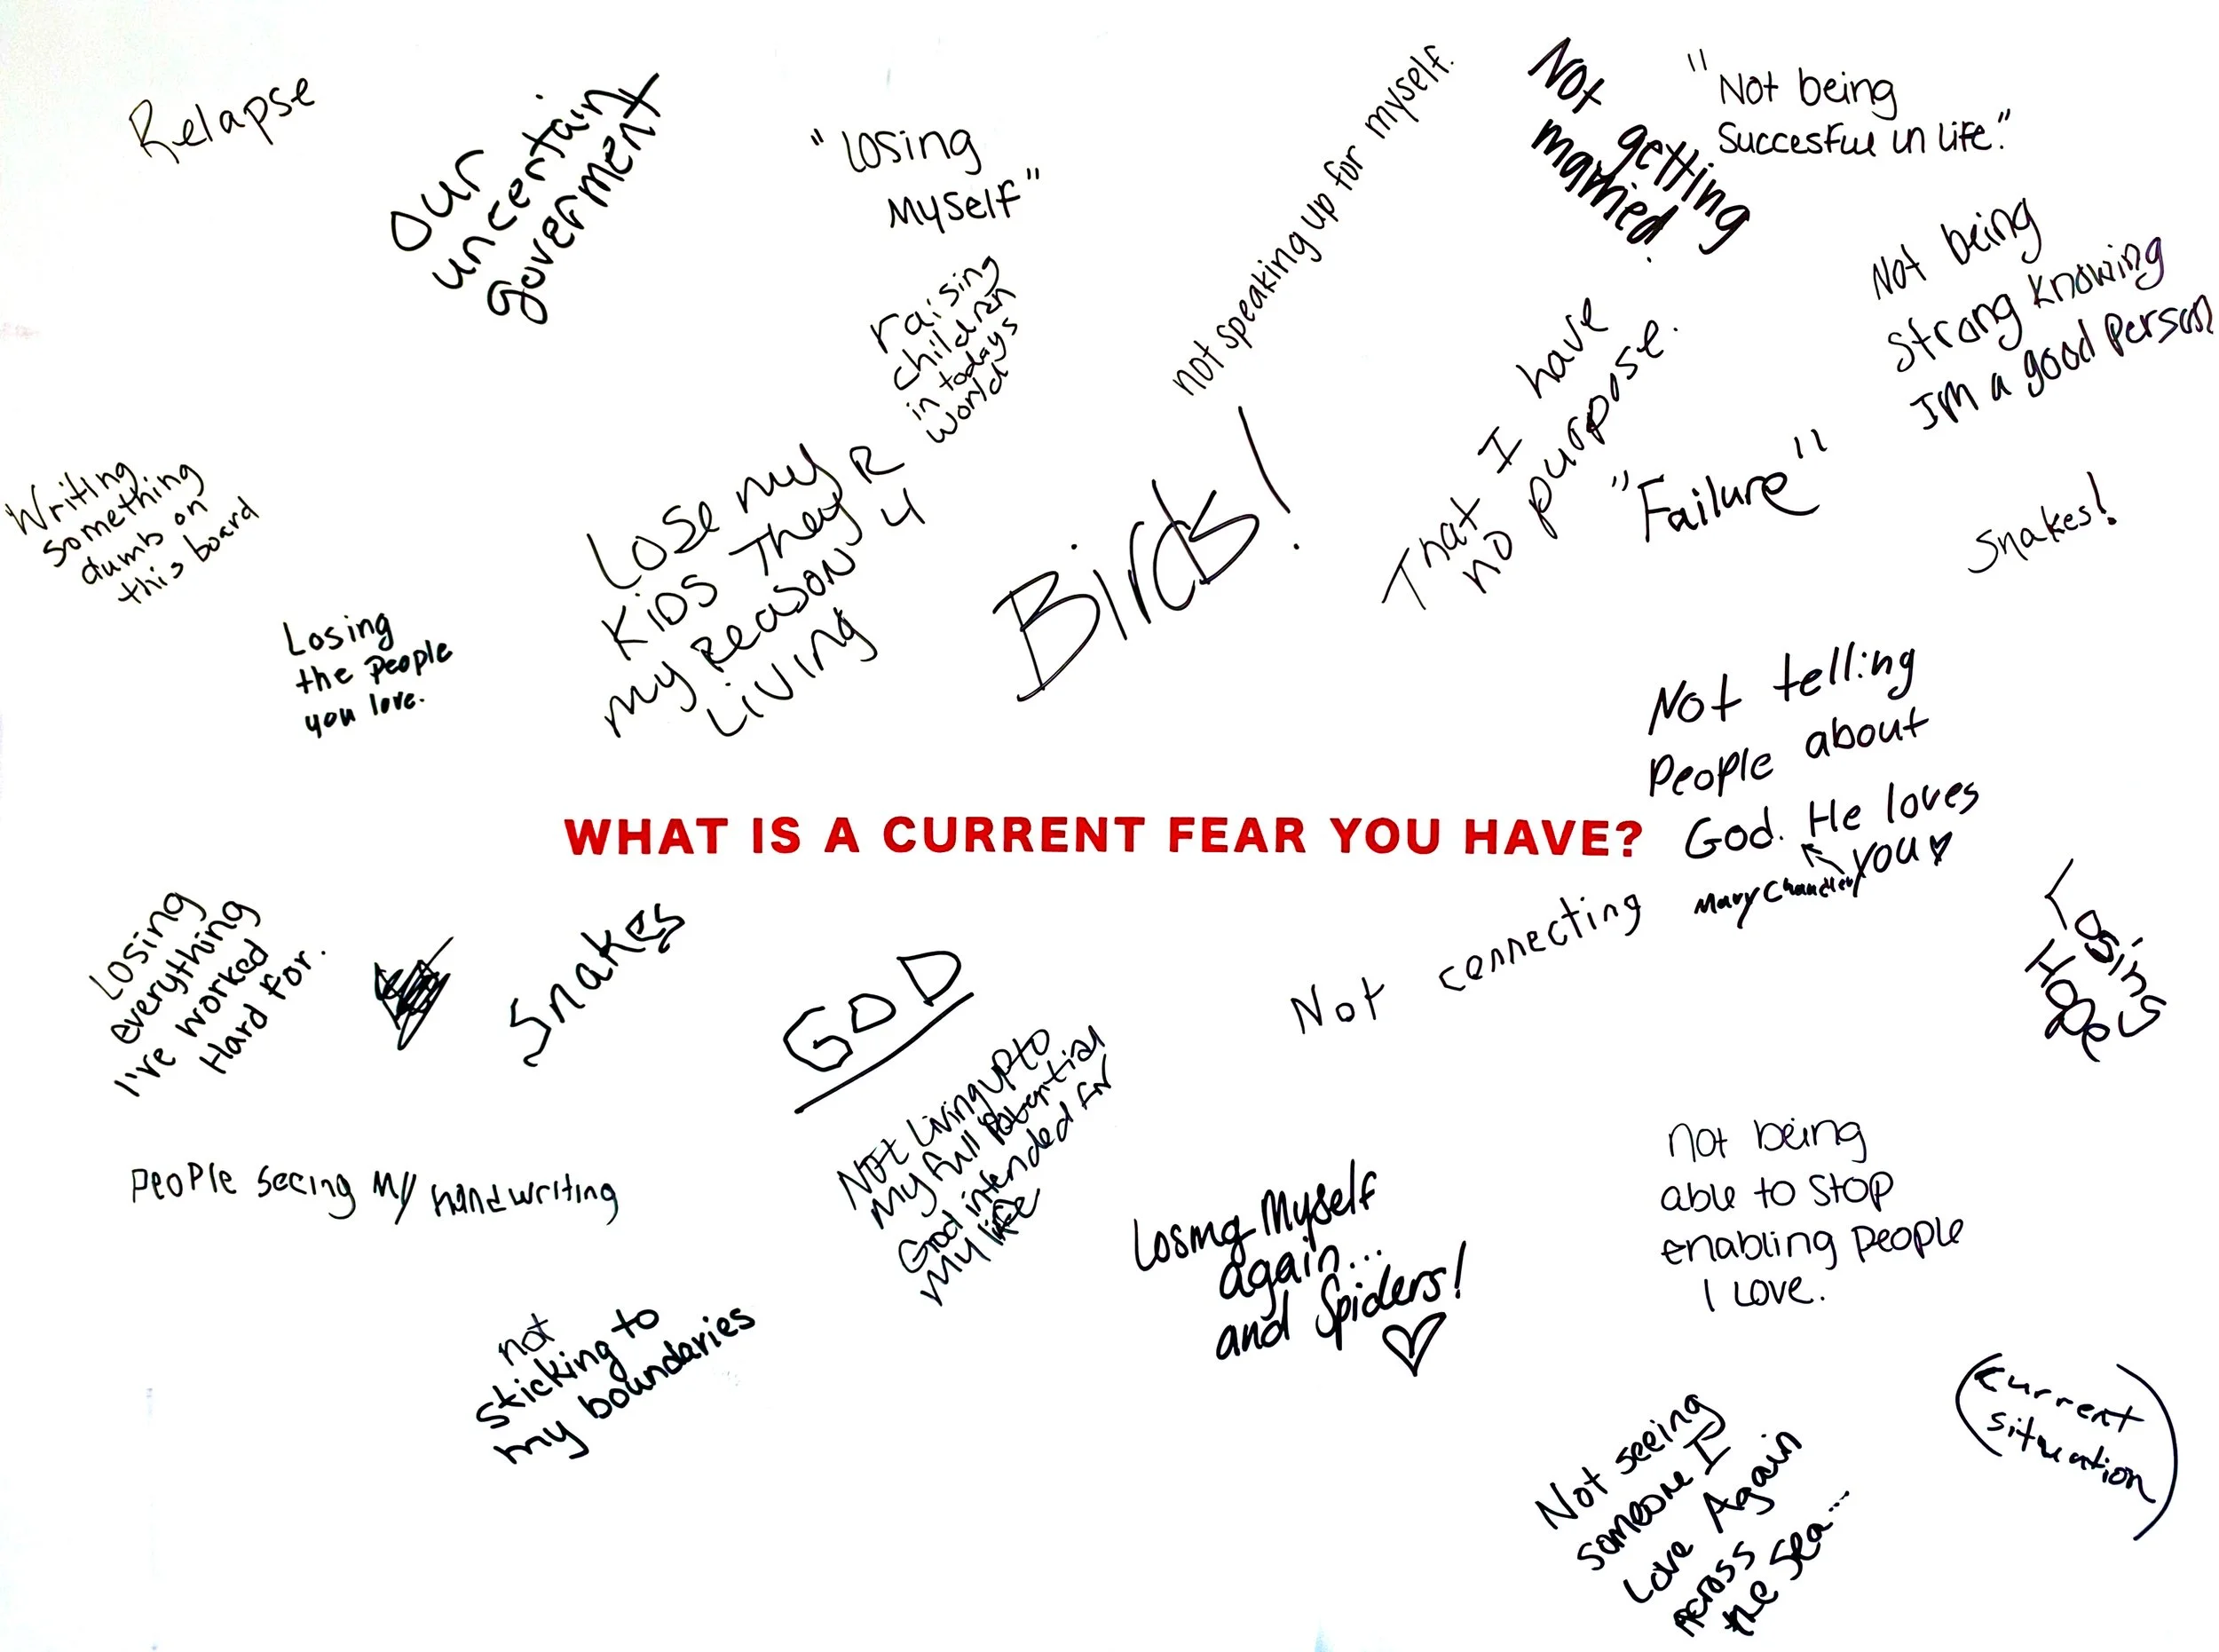 Relapse
our
uncertain
goverment
"losing
myself"
raising
children
in todays
world
not speaking up for myself.
Not getting
married!
"Not being
Succesful in life."
Not being
strong knowing
I'm a good person
That I have
no purpose.
"Failure"
Snakes!
Writing
something
dumb on
this board
Losing
the people
you love.
Lose my
Kids They R
my Reason 4
Living
Birds!
Not telling
People about
God. He loves
you ♡
Mary Chandler
WHAT IS A CURRENT FEAR YOU HAVE?
Losing
everything
I've worked
Hard for.
Snakes
GOD
Not connecting
Losing
Hope
People seeing my handwriting
Not Living up to
My full Potential
God intended for
My life
Losing Myself
again...
and Spiders!
♡
not being
able to stop
enabling people
I love.
not
sticking to
my boundaries
Not seeing
someone I
Love Again
Across
the sea...
(Current
situation)